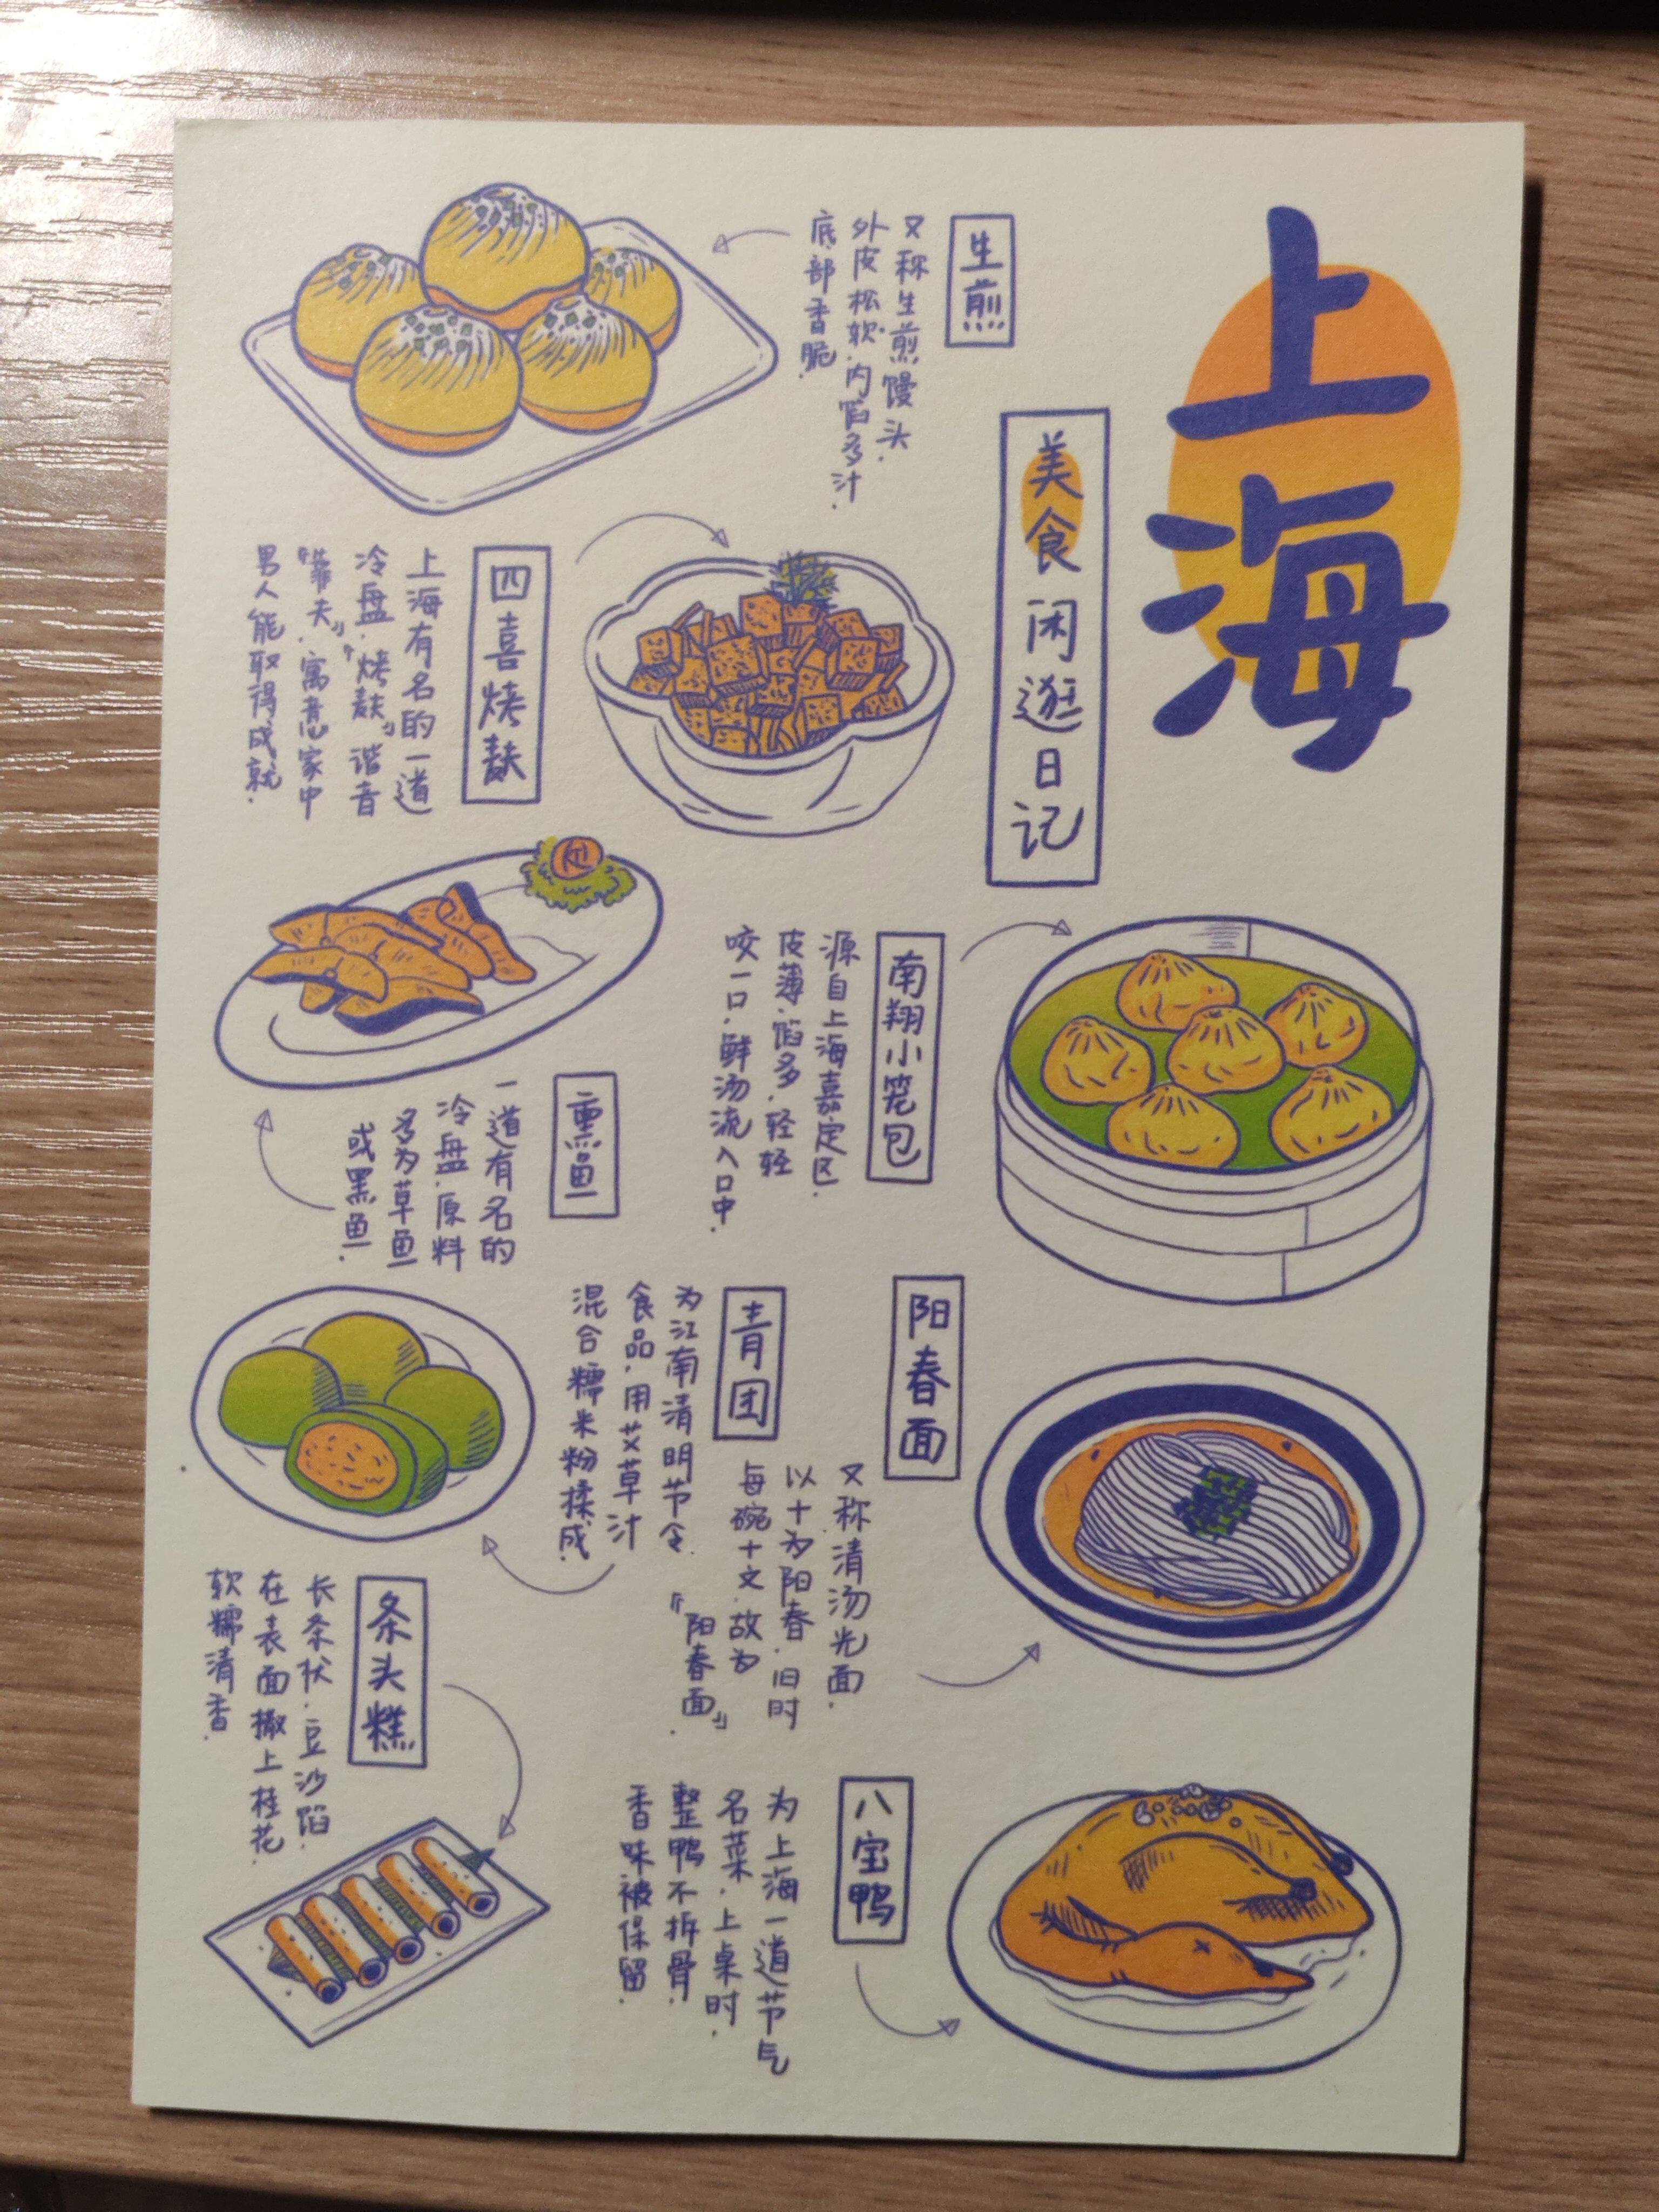 上海
美食闲逛日记
生煎
又称生煎馒头.
外皮松软.内馅多汁.
底部香脆.
四喜烤麸
上海有名的一道
冷盘.“烤麸”谐音
“靠夫”.寓意家中
男人能取得成就.
南翔小笼包
源自上海嘉定区.
皮薄.馅多.轻轻
咬一口.鲜汤流入口中.
熏鱼
一道有名的
冷盘.原料
多为草鱼
或黑鱼.
阳春面
又称清汤光面.
以十为阳春.旧时
每碗十文.故为
“阳春面”.
青团
为江南清明节令
食品.用艾草汁
混合糯米粉揉成.
条头糕
长条状.豆沙馅.
在表面撒上桂花.
软糯清香.
八宝鸭
为上海一道节气
名菜.上桌时.
整鸭不拆骨.
香味被保留.